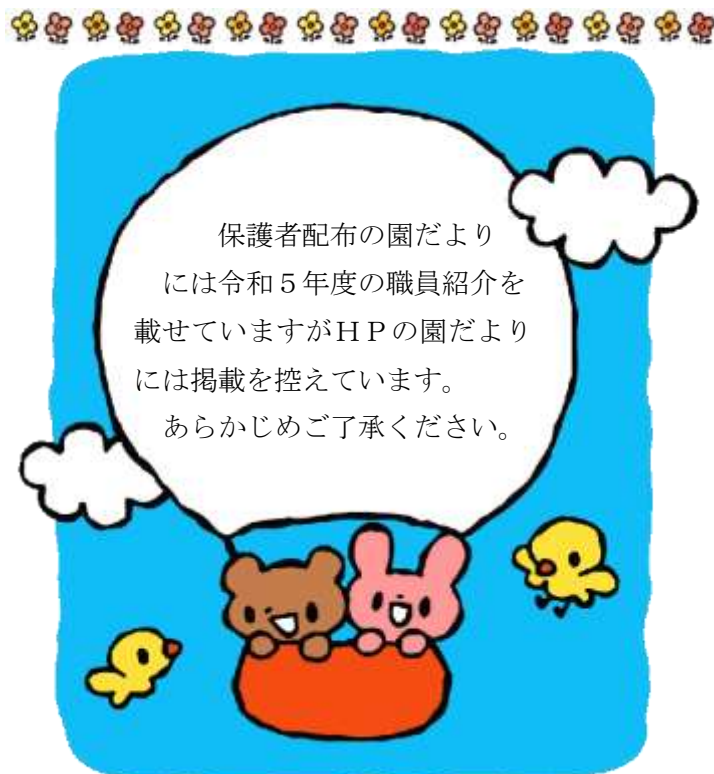 保護者配布の園だより
には令和５年度の職員紹介を
載せていますがＨＰの園だより
には掲載を控えています。
あらかじめご了承ください。